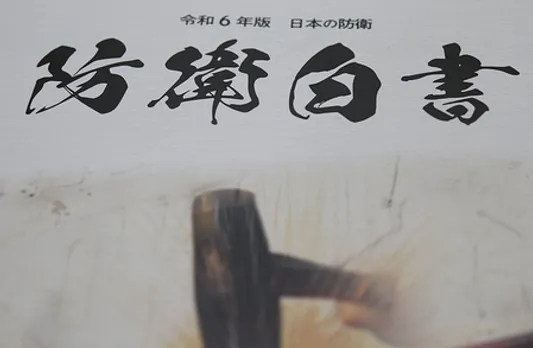 令和6年版 日本の防衛
防衛白書